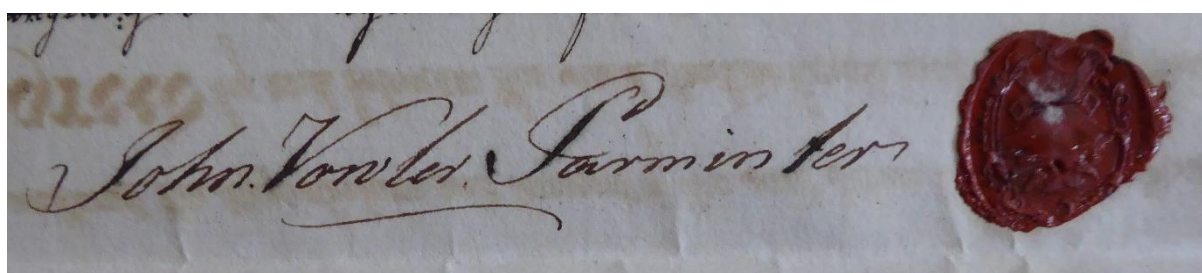 John. Vowler. Parminter